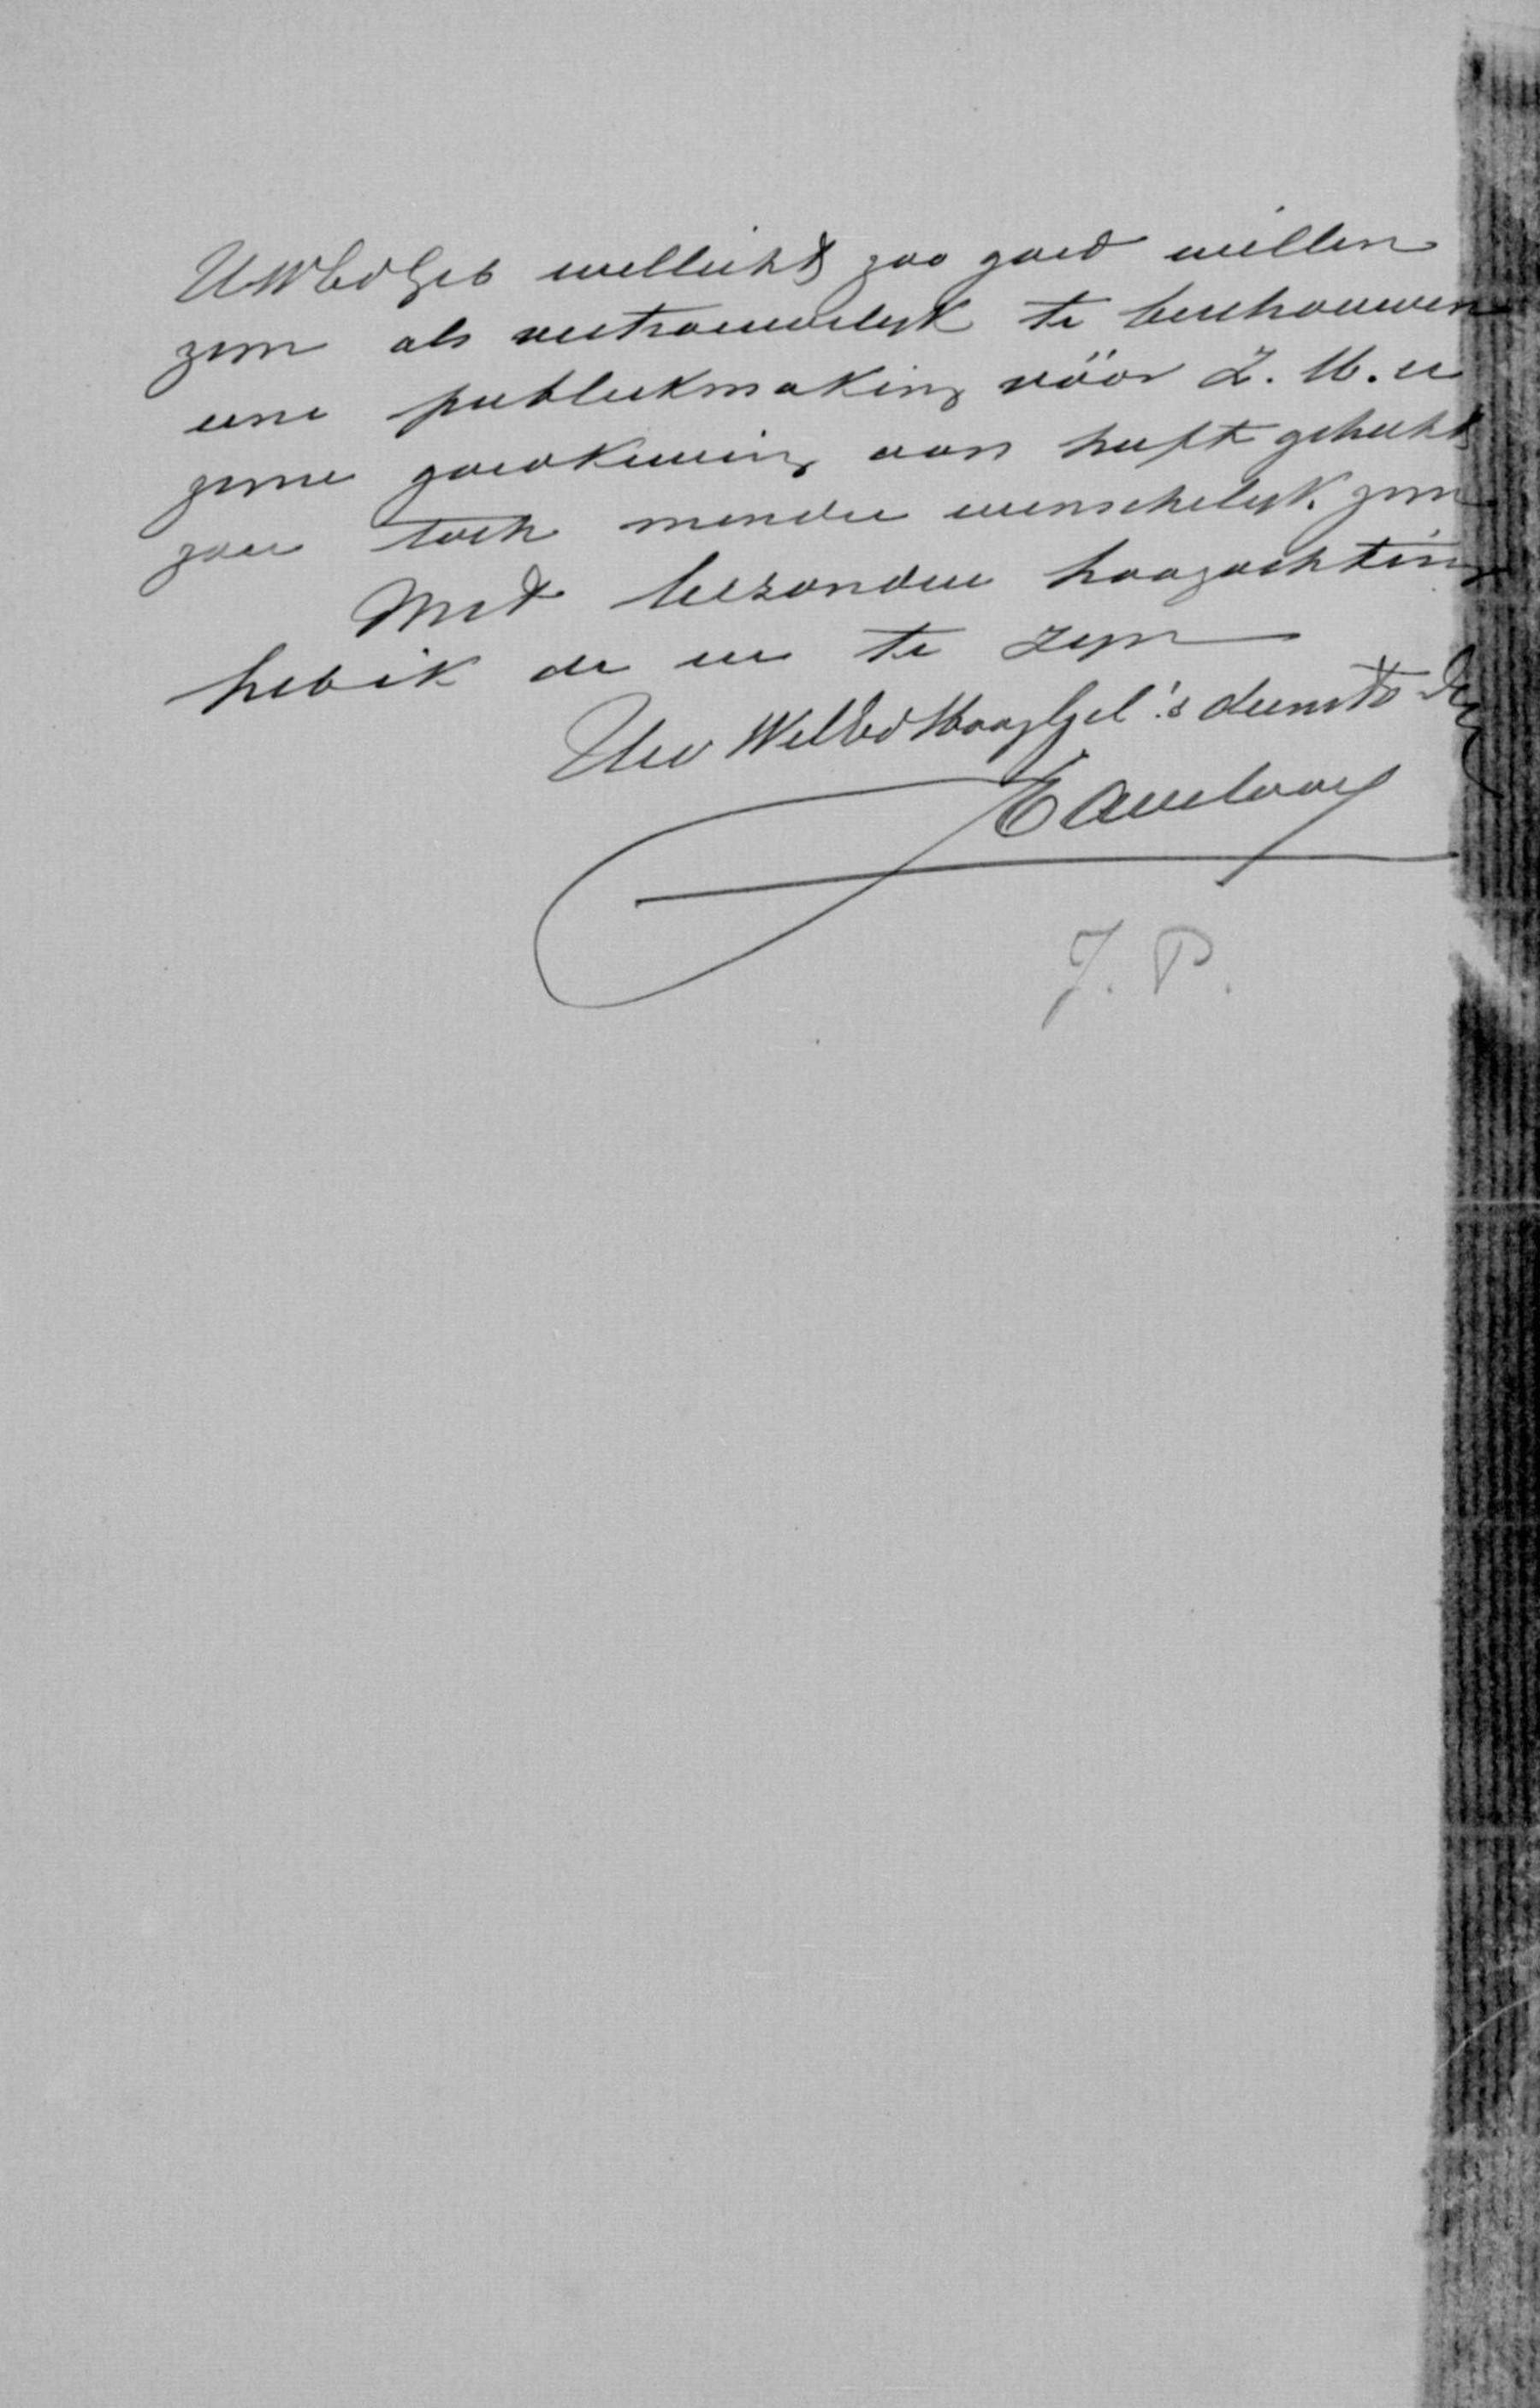 UWEdGeb wellicht zoo goed willen
zijn als vertrouwelijk te beschouwen
eene publiekmaking vóór Z. M. er
zijne goedkeuring aan heeft gehecht
zou toch minder wenschelijk zijn
Met bezondere hoogachting
heb ik de eer te zijn
Uw WelEdHoogGel's dienstw Dr
J. P.